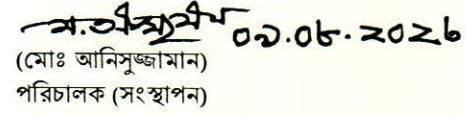 ০৯.০৮.2026
(মোঃ আনিসুজ্জামান)
পরিচালক (সংস্থাপন)